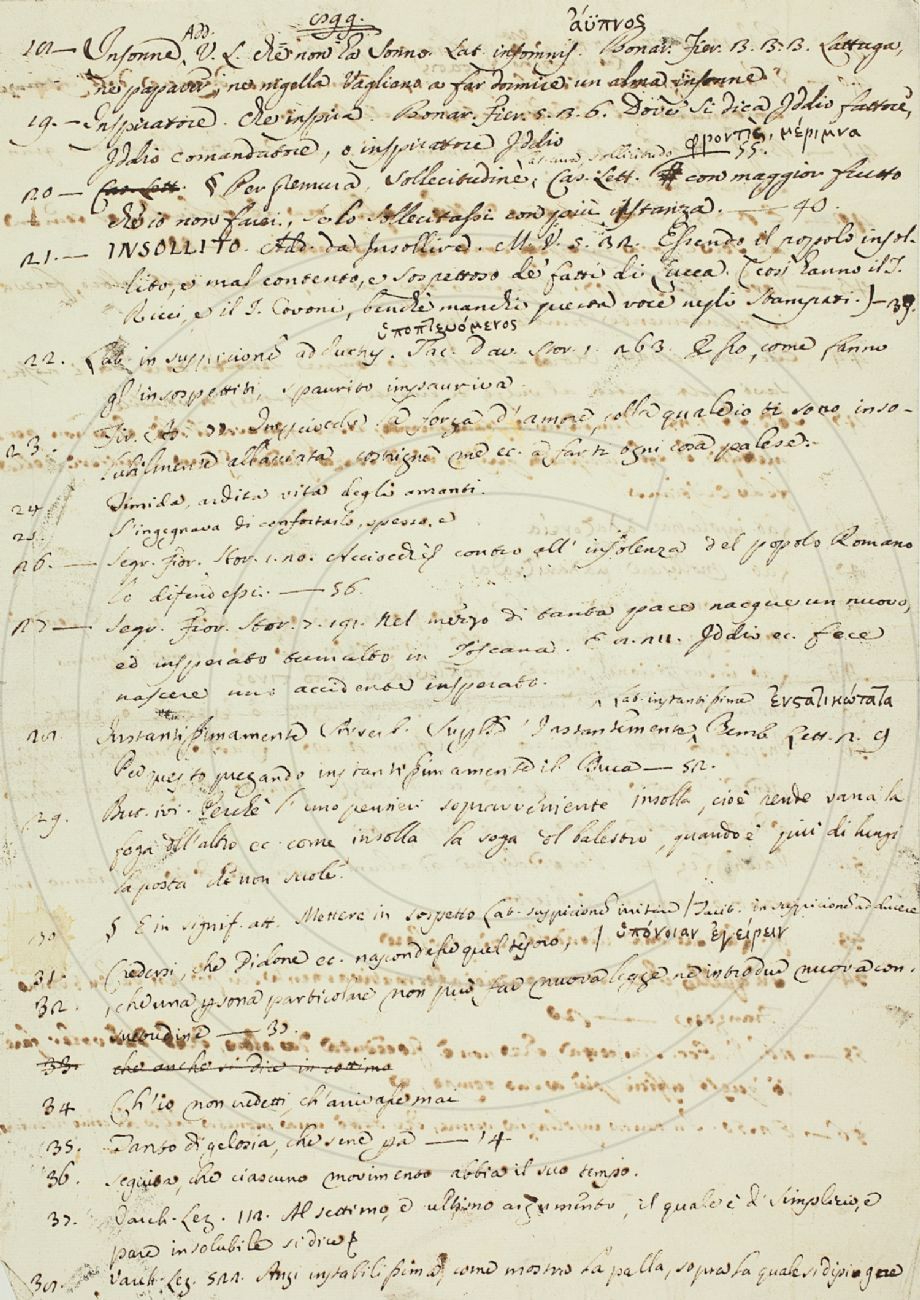 Add. ἄϋπνος
18 — Insonne, V. L. che non ha sonno. Lat. insomnis. Bonar. Fier. 3. 3. 3. Lattuga,
nè papaver, ne nigella Vagliano a far dormire un alma insonne
19. — Inspiratore. che inspira. Bonar. Fier. 5. 3. 6. Dove si dica Iddio fattore,
Iddio comandatore, o inspiratore Iddio
sollicitudo φροντὶς, μέριμνα
20 — Cas. Lett. § Per premura, sollecitudine, Cas. Lett. 55. con maggior frutto
che io non farei, se lo sollecitassi con più instanza. — 40.
21. — INSOLLITO. Add. da Insollire. M. V. 5. 32. Essendo il popolo insol-
lito, e mal contento, e sospettoso de' fatti di Lucca. (così hanno il T.
Ricci, e il T. Covoni, benchè manchi questa voce negli stampati.) — 39.
ὑποπτευόμενος
22. Lat. in suspicionem adductus. Tac. Dav. Stor. 1. 263. Esso, come fanno
gl' insospettiti, spaurito impauriva
23. a forza d' amore, colla quale io ti sono inso-
lubilmente allacciata, costrigne me ec. a farti ogni cosa palese.
24 Timida, ardita vita degli amanti.
25. S'ingegnava di confortarlo, spesso, e
26. — Segr. Fior. Stor. 1. 20. Acciocchè contro all' insolenza del popolo Romano
lo difendessi. — 56.
27 — Segr. Fior. Stor. 7. 191. Nel mezzo di tanta pace nacque un nuovo,
ed insperato tumulto in Toscana. E Iddio ec. fece
nascere uno accidente insperato.
Lat. instantissime ἐνστατικώτατα
28. Instantissimamente Superl. Instantemente, Bemb. Lett. 2. 9
Per questo pregando instantissimamente il Duca — 52.
29. But. ivi. Perchè l' uno pensieri sopravvegniente insolla, cioè rende vana la
foga dell'altro ec. come insolla la foga del balestro, quando è più di lungi
la posta che non suole.
30 § E in signif. att. Mettere in sospetto Lat. suspicionem Tacit. in suspicionem adducere
ὑπόνοιαν ἐγείρειν
31. Credersi, che Didone ec. nascondesse quel tesoro,
32. che una persona particolare non può far nuova legge ne introdur nuova con-
suetudine — 37.
33. che anche si dice in cottimo
34 Ch'io non credetti, ch'arrivasse mai
35. Tanto di gelosia, che sene — 14
36. Seguita, che ciascuno movimento abbia il suo tempo.
37. Varch. Lez. 112. Al settimo, e ultimo argumento, il quale è di Simplicio, e
pare insolubile si dice
38. Varch. Lez. 522. Anzi instabilissima, come mostra la palla, sopra la quale si dipigne